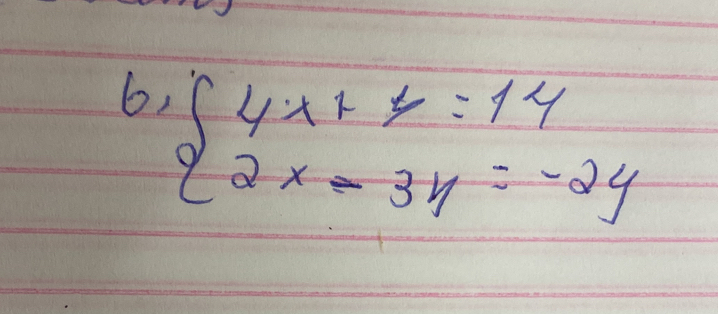 6. { 4x + y = 14
2x - 3y = -2y